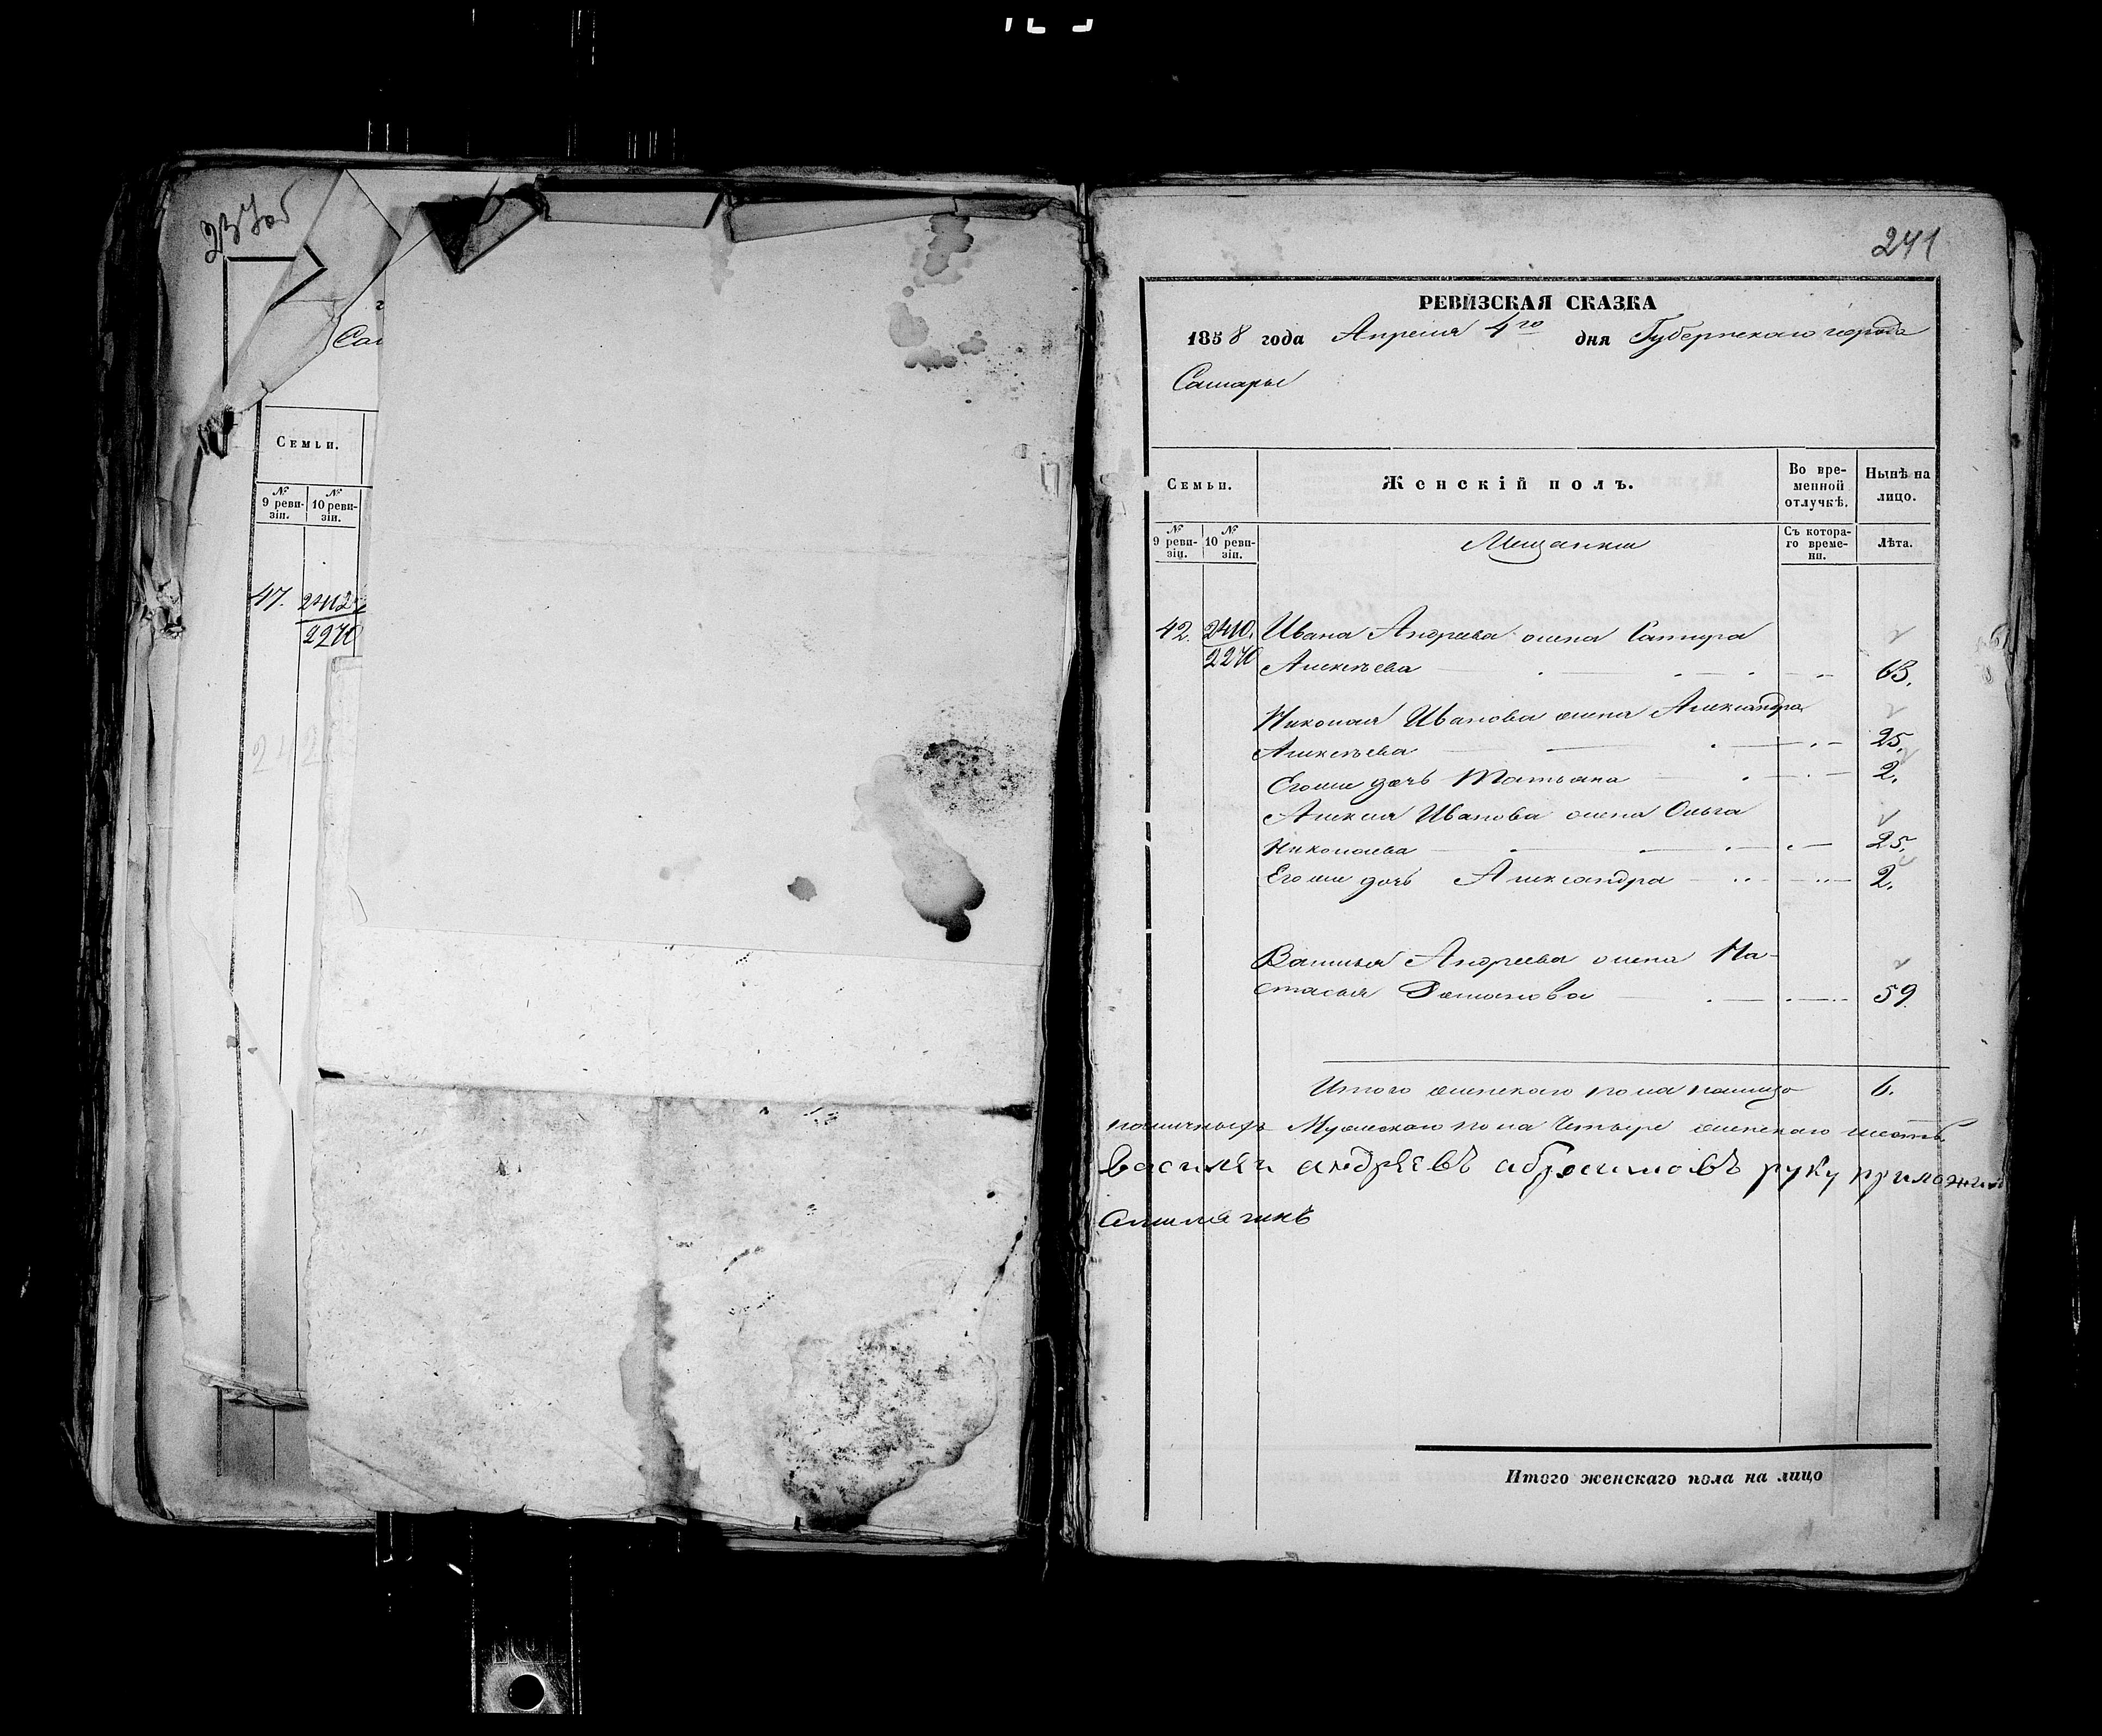 237об
Саг
Семьи.
№ 9 реви-зіи. № 10 реви-зіи.
47. 2412
2270
242
241
РЕВИЗСКАЯ СКАЗКА
1858 года Апреля 4го дня Губернскаго города
Самары
Семьи. Женскій полъ. Во вре-менной отлучкѣ. Нынѣ на лицо.
№ 9 реви-зіи. № 10 реви-зіи. Мещанки Съ котора-го време-ни. Лѣта.
42. 2410. Ивана Андреева жена
2270 Алексѣева 63.
Николая Иванова жена Александра
Алексѣева 25.
Егоже дочь Татьяна 2.
Алексея Иванова жена Ольга
Николаева 25.
Егоже дочь Александра 2.
Василья Андреева жена На-
стасья Романова 59.
Итого женскаго пола налицо 6.
наличныхъ Мужескаго пола Четыре женскаго шесть.
Василеи андреевъ абросимовъ руку приложил
Итого женскаго пола на лицо